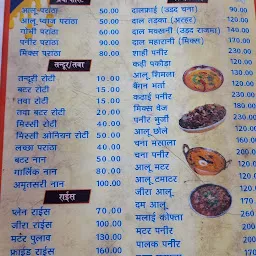 आलू पराठा 50.00
आलू प्याज पराठा 50.00
गोभी पराठा 60.00
पनीर पराठा 90.00
मिक्स पराठा 80.00
तन्दूर/तवा
तन्दूरी रोटी 10.00
बटर रोटी 15.00
तवा रोटी 15.00
तवा बटर रोटी 20.00
मिस्सी रोटी 40.00
मिस्सी ओनियन रोटी 50.00
लच्छा पराठा 40.00
बटर नान 50.00
गार्लिक नान 80.00
अमृतसरी नान 100.00
राईस
प्लेन राईस
जीरा राईस 100.00
मटर पुलाव 130.00
फ्राईड राईस 160.00
दालफ्राई (उड़द चना) 90.00
दाल तड़का (अरहर) 120.00
दाल मक्खनी (उड़द राजमा) 140.00
दाल महारानी (मिक्स)
शाही पनीर
कढ़ी पकोड़ा
आलू शिमला
बैंगन भर्ता
कढ़ाई पनीर
मिक्स वेज
पनीर भुर्जी
आलू छोले
चना मसाला
चना पनीर
आलू मटर
आलू टमाटर
जीरा आलू
दम आलू
मलाई कोफ्ता
मटर पनीर
पालक पनीर